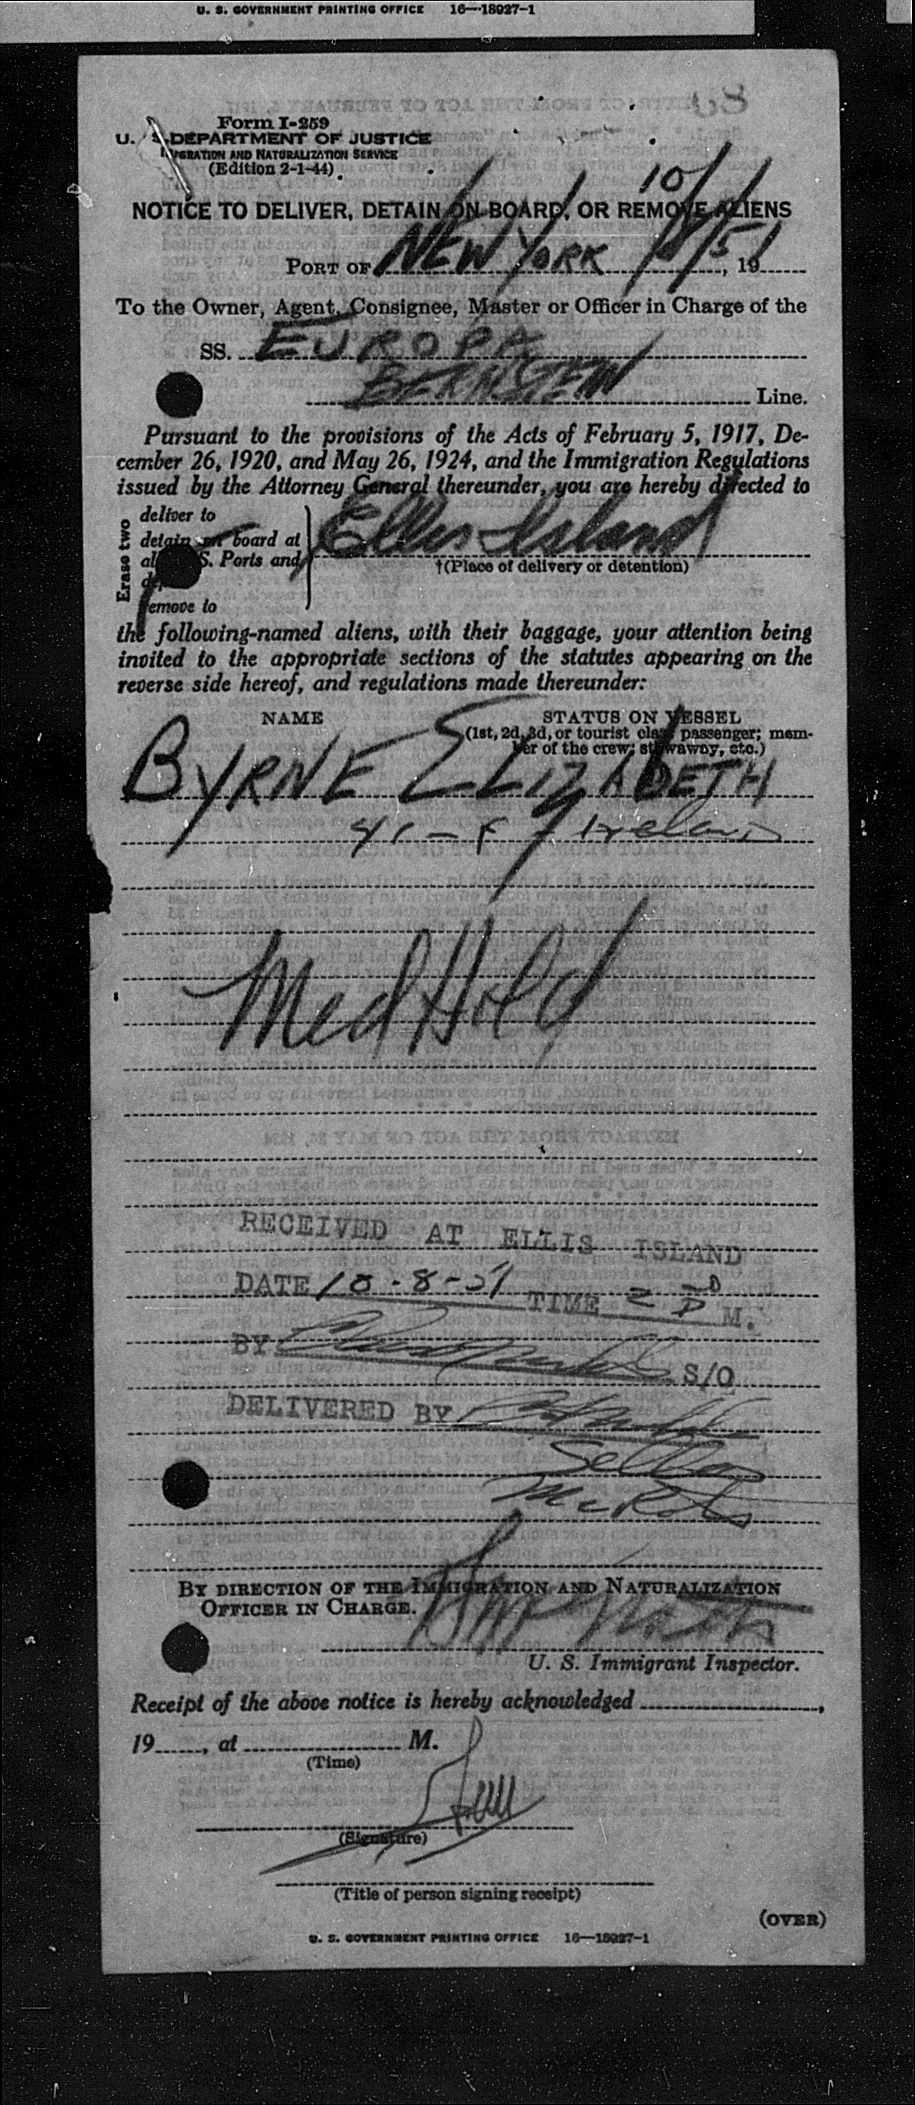 U. S. GOVERNMENT PRINTING OFFICE 16—18027-1
68
Form I-259
U. S. DEPARTMENT OF JUSTICE
IMMIGRATION AND NATURALIZATION SERVICE
(Edition 2-1-44)
NOTICE TO DELIVER, DETAIN ON BOARD, OR REMOVE ALIENS
PORT OF NEW YORK 10/8/51, 19
To the Owner, Agent, Consignee, Master or Officer in Charge of the
SS. EUROPA
BERNSTEIN Line.
Pursuant to the provisions of the Acts of February 5, 1917, De-
cember 26, 1920, and May 26, 1924, and the Immigration Regulations
issued by the Attorney General thereunder, you are hereby directed to
Erase two
deliver to
detain on board at
all U. S. Ports and
remove to
Ellis Island
†(Place of delivery or detention)
the following-named aliens, with their baggage, your attention being
invited to the appropriate sections of the statutes appearing on the
reverse side hereof, and regulations made thereunder:
NAME STATUS ON VESSEL
(1st, 2d, 3d, or tourist class passenger; mem-
ber of the crew; stowaway, etc.)
BYRNE ELIZABETH
41 - F Ireland
Med Hold
RECEIVED AT ELLIS ISLAND
DATE 10-8-51 TIME 2 P M.
BY S/O
DELIVERED BY
BY DIRECTION OF THE IMMIGRATION AND NATURALIZATION
OFFICER IN CHARGE.
U. S. Immigrant Inspector.
Receipt of the above notice is hereby acknowledged ,
19 , at M.
(Time)
(Signature)
(Title of person signing receipt)
(OVER)
U. S. GOVERNMENT PRINTING OFFICE 16—18027-1